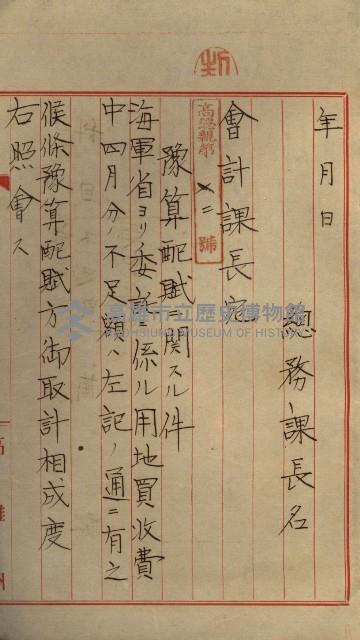 年月日
總務課長名
會計課長宛
高總親第 二 號
豫算配賦ニ關スル件
海軍省ヨリ委託ニ係ル用地買收費
中四月分ノ不足額ハ左記ノ通ニ有之
候條豫算配賦方御取計相成度
右照會ス
高雄州
高雄市立歷史博物館
KAOHSIUNG MUSEUM OF HISTORY